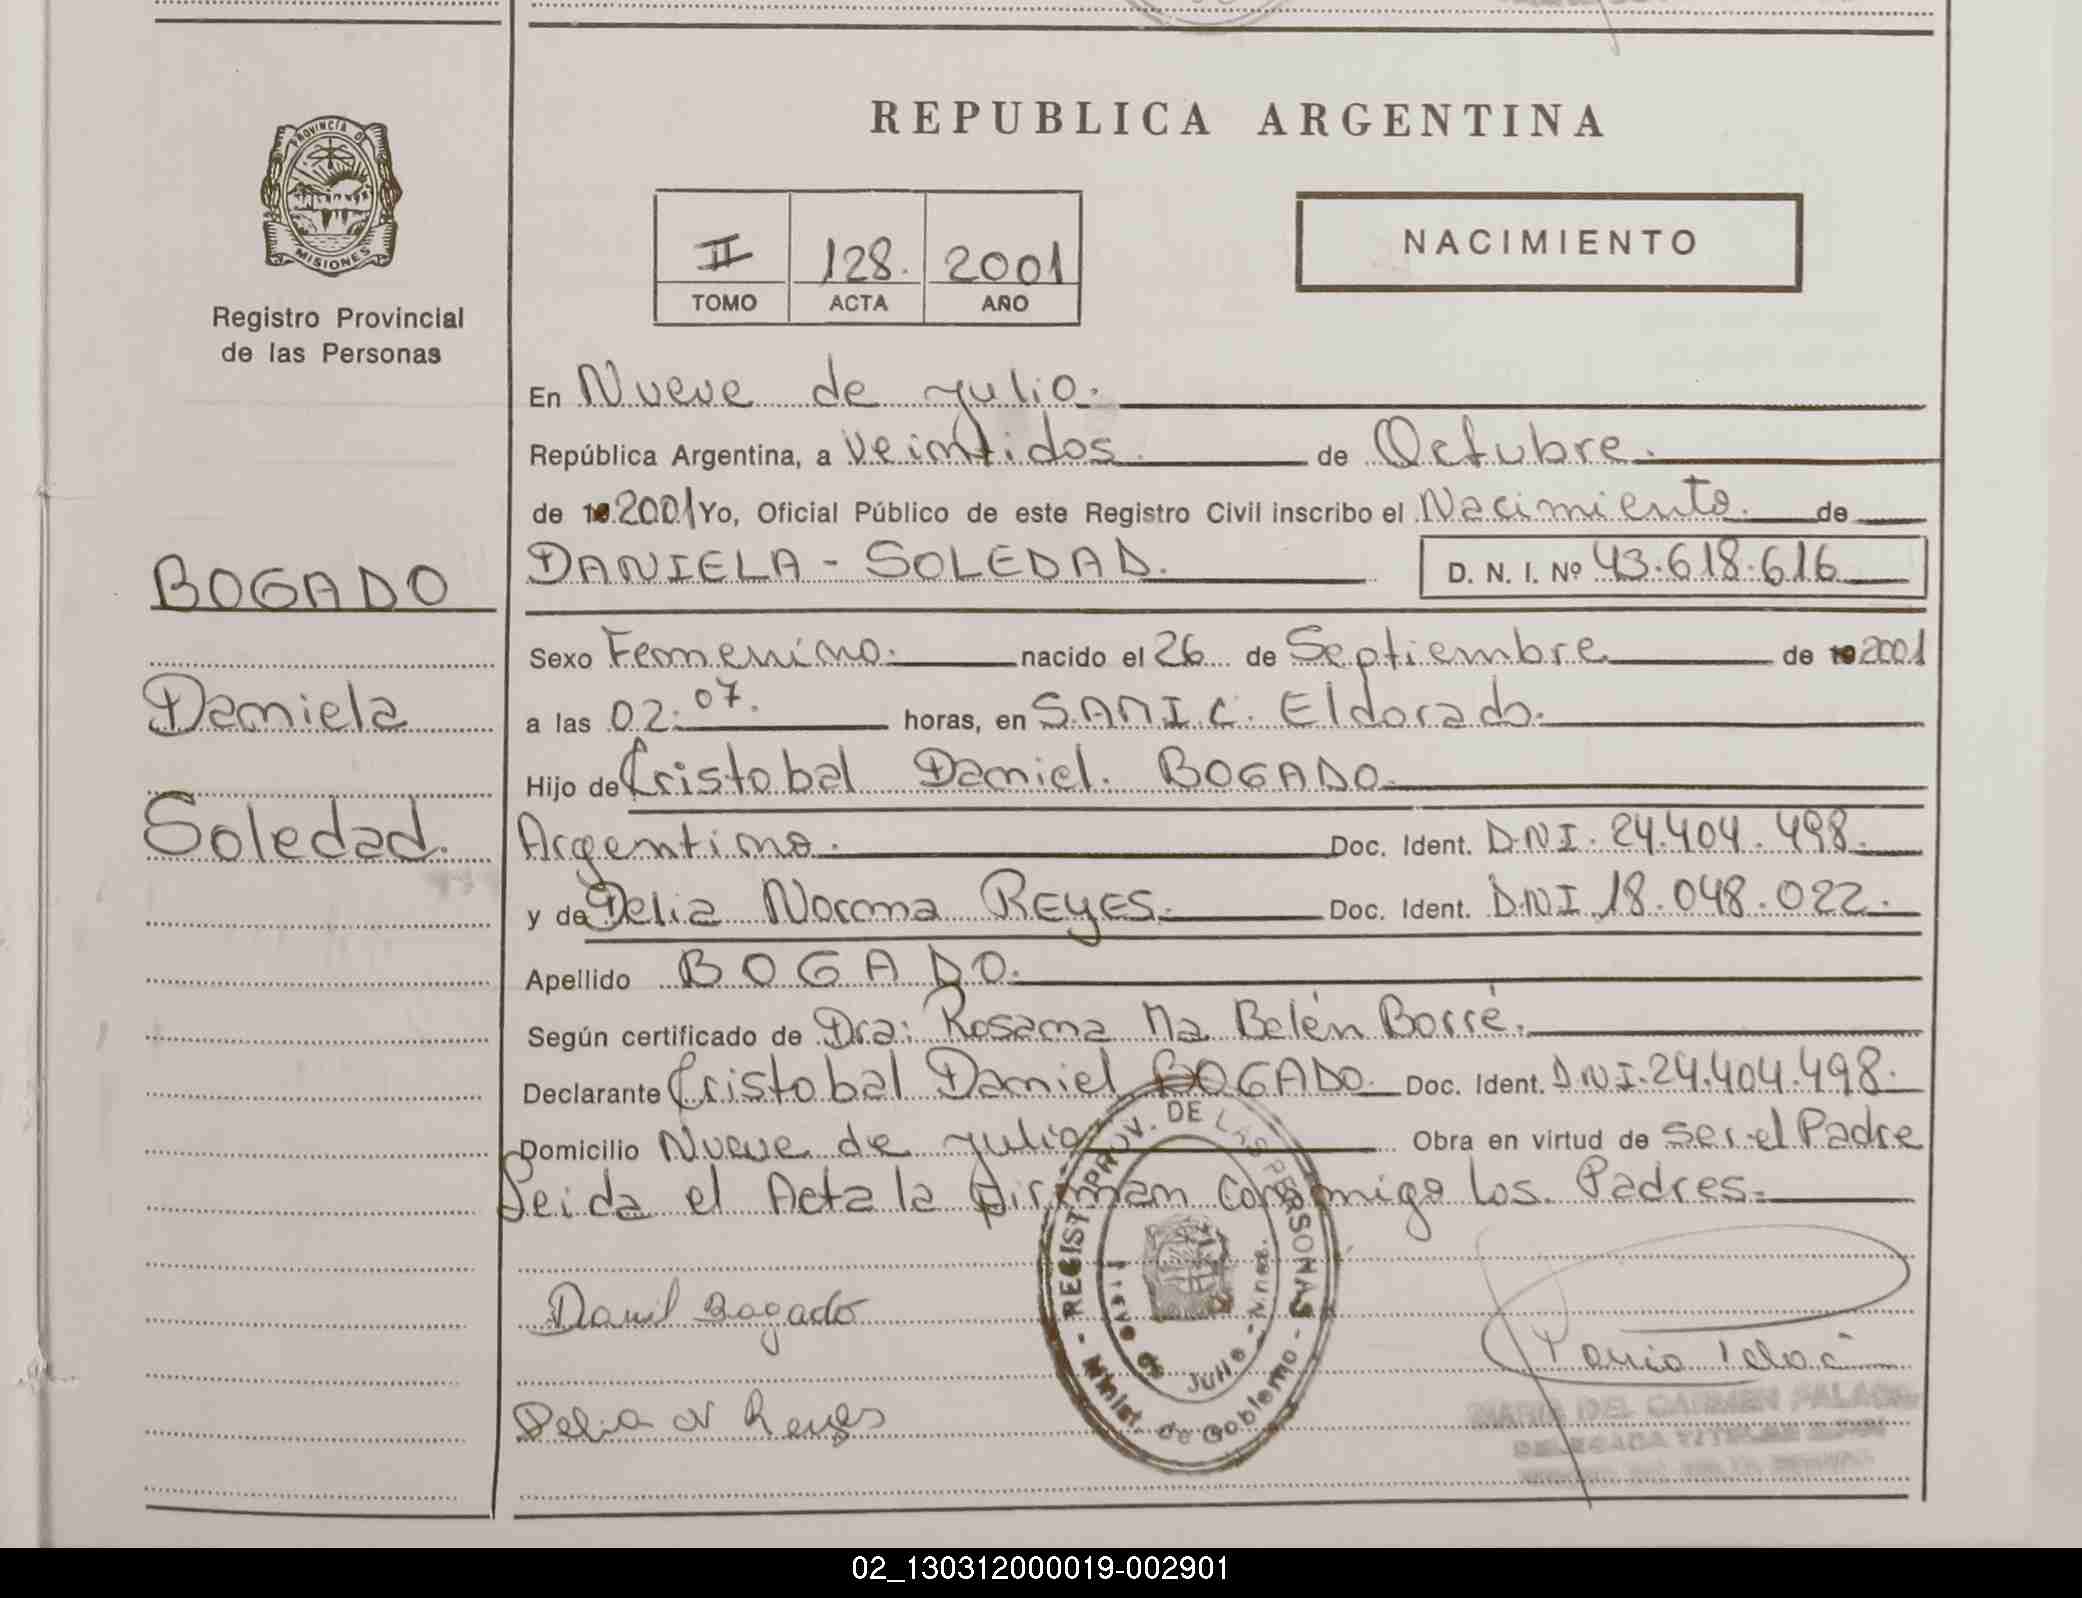 PROVINCIA DE
MISIONES
Registro Provincial
de las Personas
BOGADO
Daniela
Soledad.
REPUBLICA ARGENTINA
II 128. 2001
TOMO ACTA AÑO
NACIMIENTO
En Nueve de julio.
República Argentina, a veintidos de Octubre.
de 19 2001 Yo, Oficial Público de este Registro Civil inscribo el Nacimiento. de
DANIELA - SOLEDAD. D. N. I. Nº 43.618.616
Sexo Femenino. nacido el 26 de Septiembre de 19 2001
a las 02:07. horas, en S.AM.I.C. Eldorado.
Hijo de Cristobal Daniel. BOGADO.
Argentino. Doc. Ident. D.N.I. 24.404.498.
y de Delia Norma REYES. Doc. Ident. D.N.I 18.048.022.
Apellido BOGADO.
Según certificado de Dra: Rosana Ma Belén Borré.
Declarante Cristobal Daniel BOGADO. Doc. Ident. D.N.I. 24.404.498.
Domicilio Nueve de julio Obra en virtud de ser el Padre
Leida el Acta la firman conmigo los Padres.
REGIST. PROV. DE LAS PERSONAS
- Minist. de Gobierno -
Nueve de Julio - Mnes.
Daniel Bogado
Delia N Reyes
MARIA DEL CARMEN
DELEGADA TITULAR
02_130312000019-002901